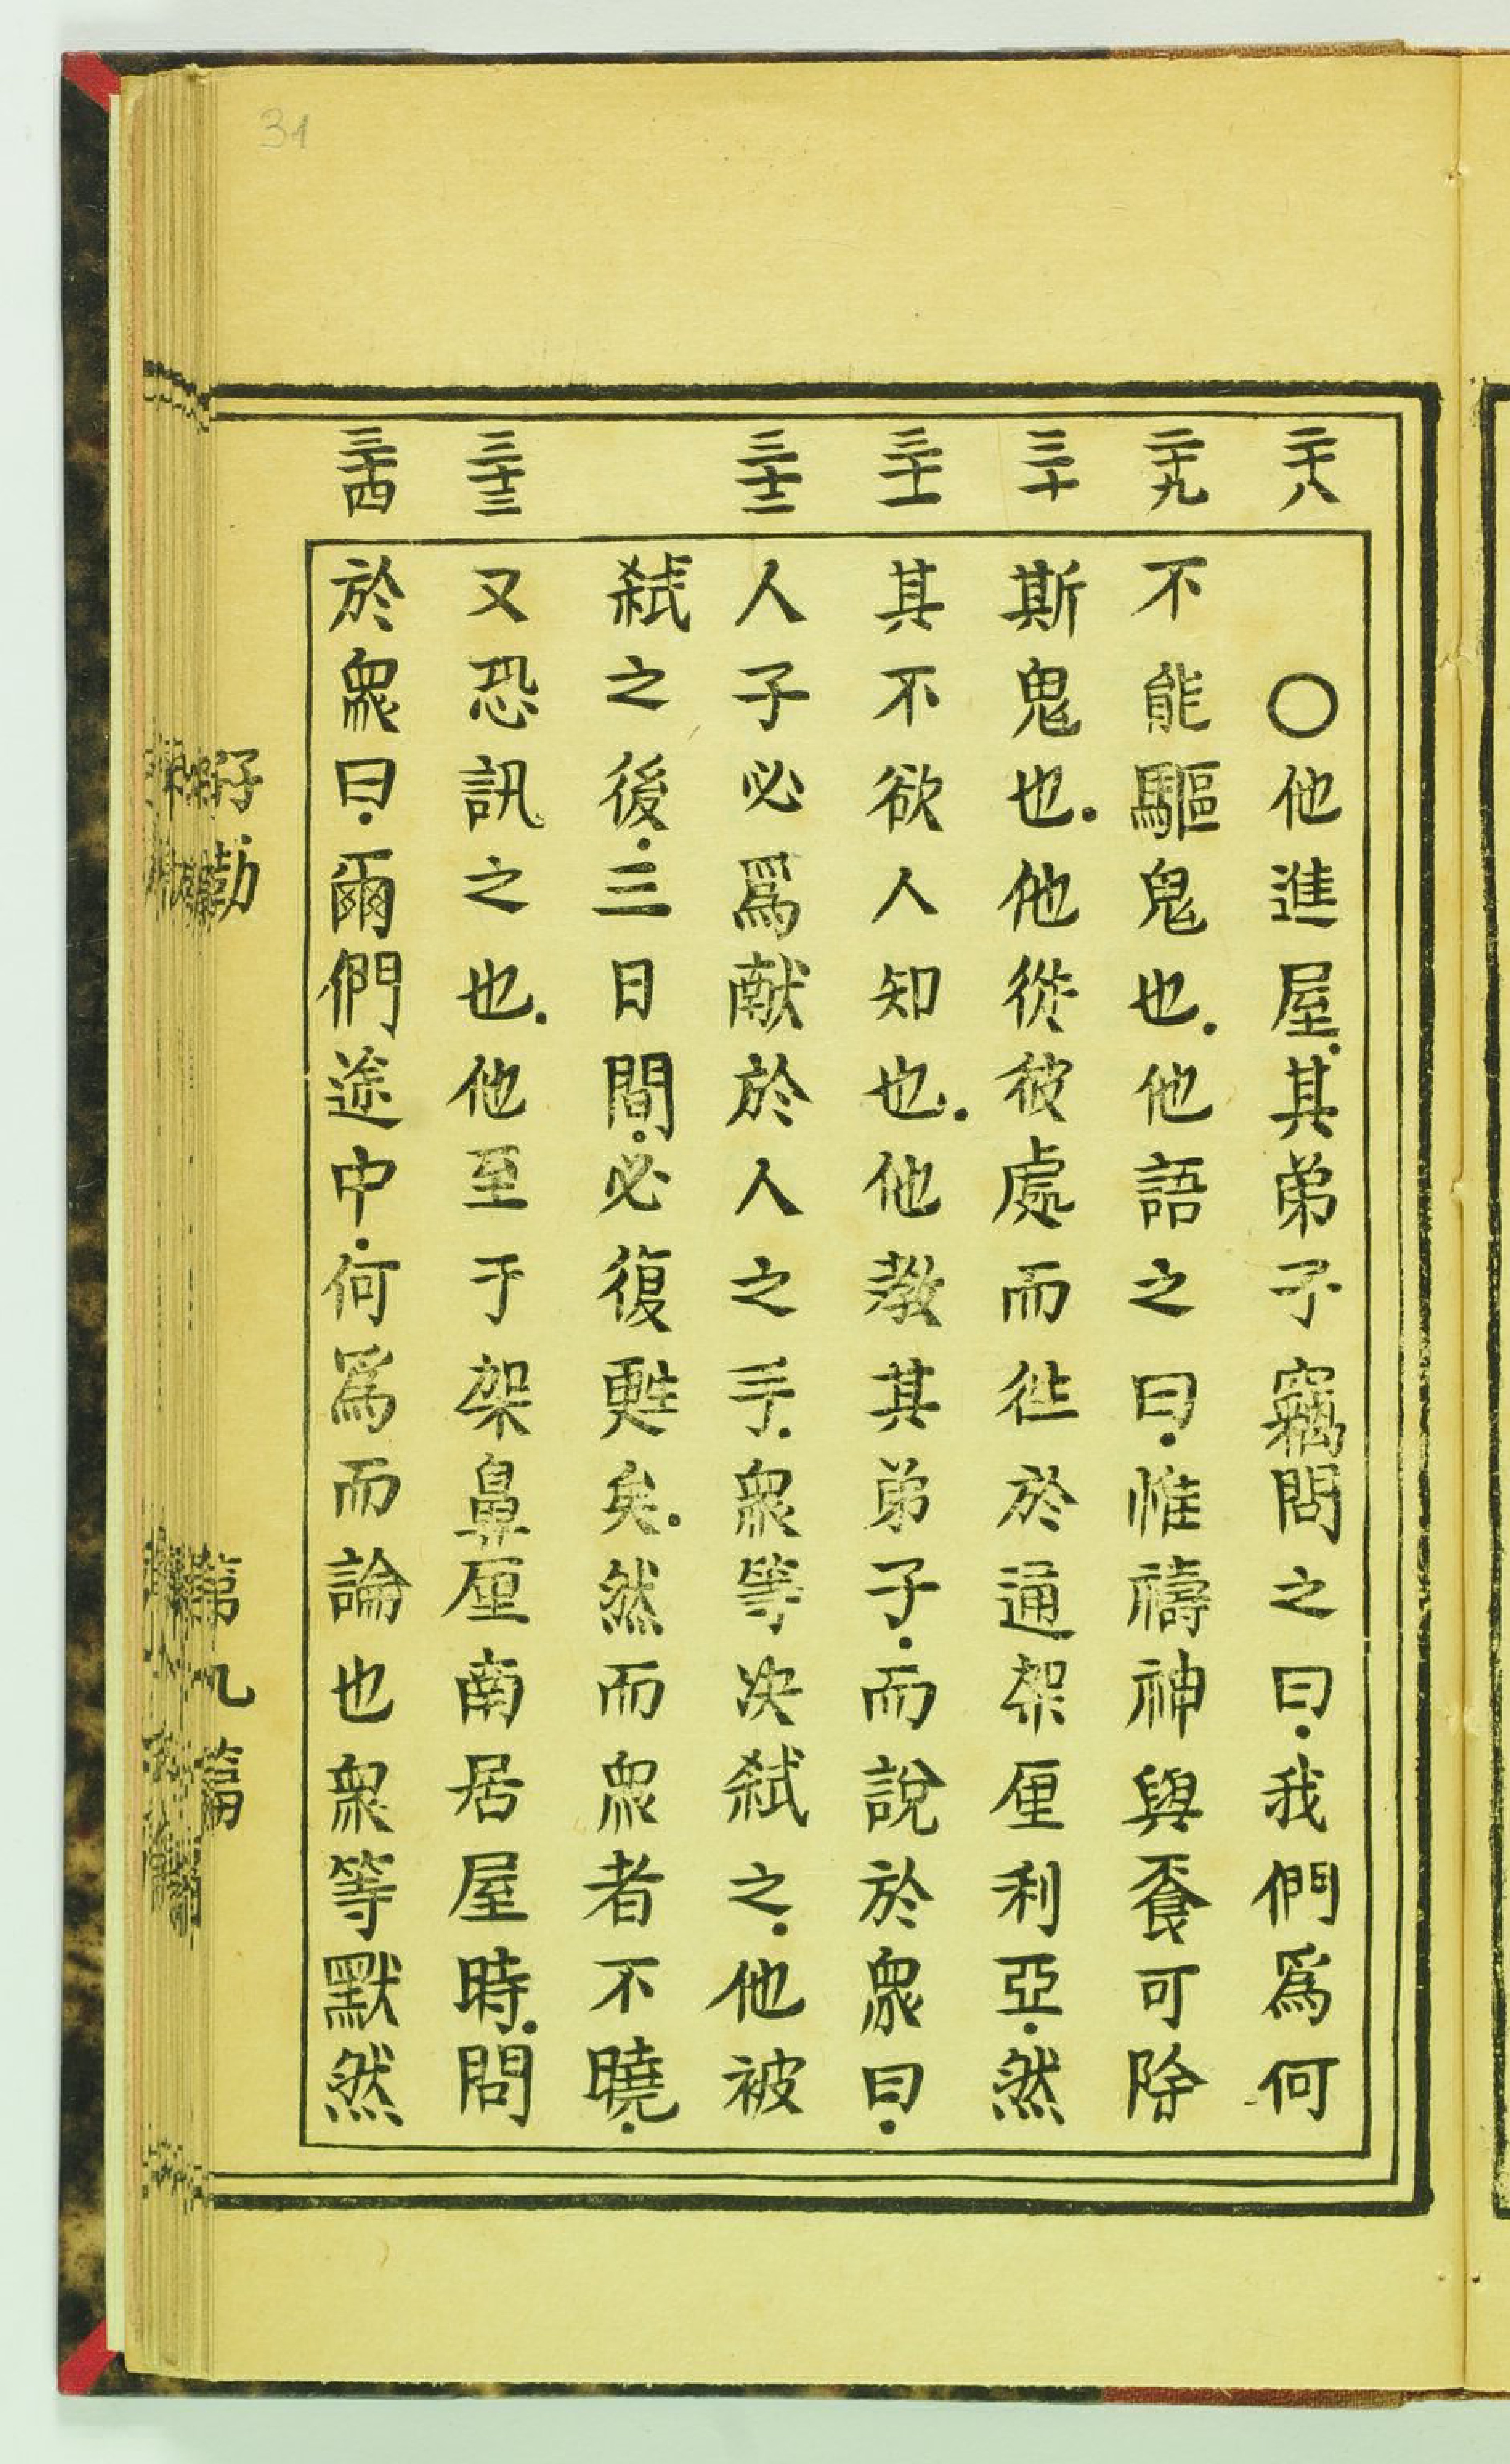 31
二十八 二十九 三十 三十一 三十二 三十三 三十四
〇他進屋.其弟子竊問之曰.我們爲何
不能驅鬼也.他語之曰.惟禱神與飬可除
斯鬼也.他從彼處而徃於通架厘利亞.然
其不欲人知也.他教其弟子.而說於衆曰.
人子必爲献於人之手.衆等决弑之.他被
弑之後.三日間.必復甦矣.然而衆者不曉.
又恐訊之也.他至于架鼻厘南居屋時.問
於衆曰.爾們途中.何爲而論也衆等默然
第九篇